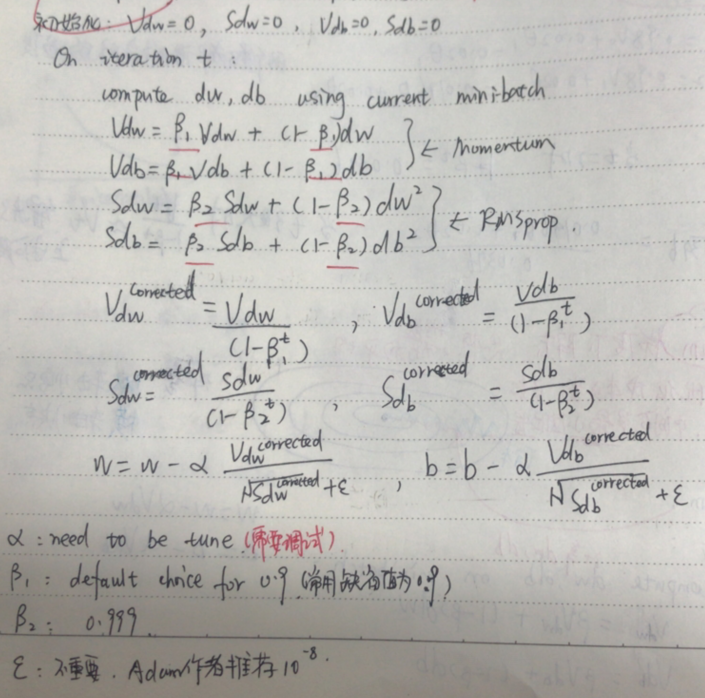 初始化: Vdw=0, Sdw=0, Vdb=0, Sdb=0
On iteration t:
compute dw, db using current mini-batch
Vdw = β₁ Vdw + (1-β₁)dw
Vdb = β₁ Vdb + (1-β₁)db } ← Momentum
Sdw = β₂ Sdw + (1-β₂)dw²
Sdb = β₂ Sdb + (1-β₂)db² } ← RMSprop
Vdw^corrected = Vdw/(1-β₁^t), Vdb^corrected = Vdb/(1-β₁^t)
Sdw^corrected = Sdw/(1-β₂^t), Sdb^corrected = Sdb/(1-β₂^t)
w = w - α Vdw^corrected/(√Sdw^corrected + ε), b = b - α Vdb^corrected/(√Sdb^corrected + ε)
α: need to be tune (需要调试)
β₁: default choice for 0.9 (常用缺省值为0.9)
β₂: 0.999
ε: 不重要. Adam作者推荐10⁻⁸.